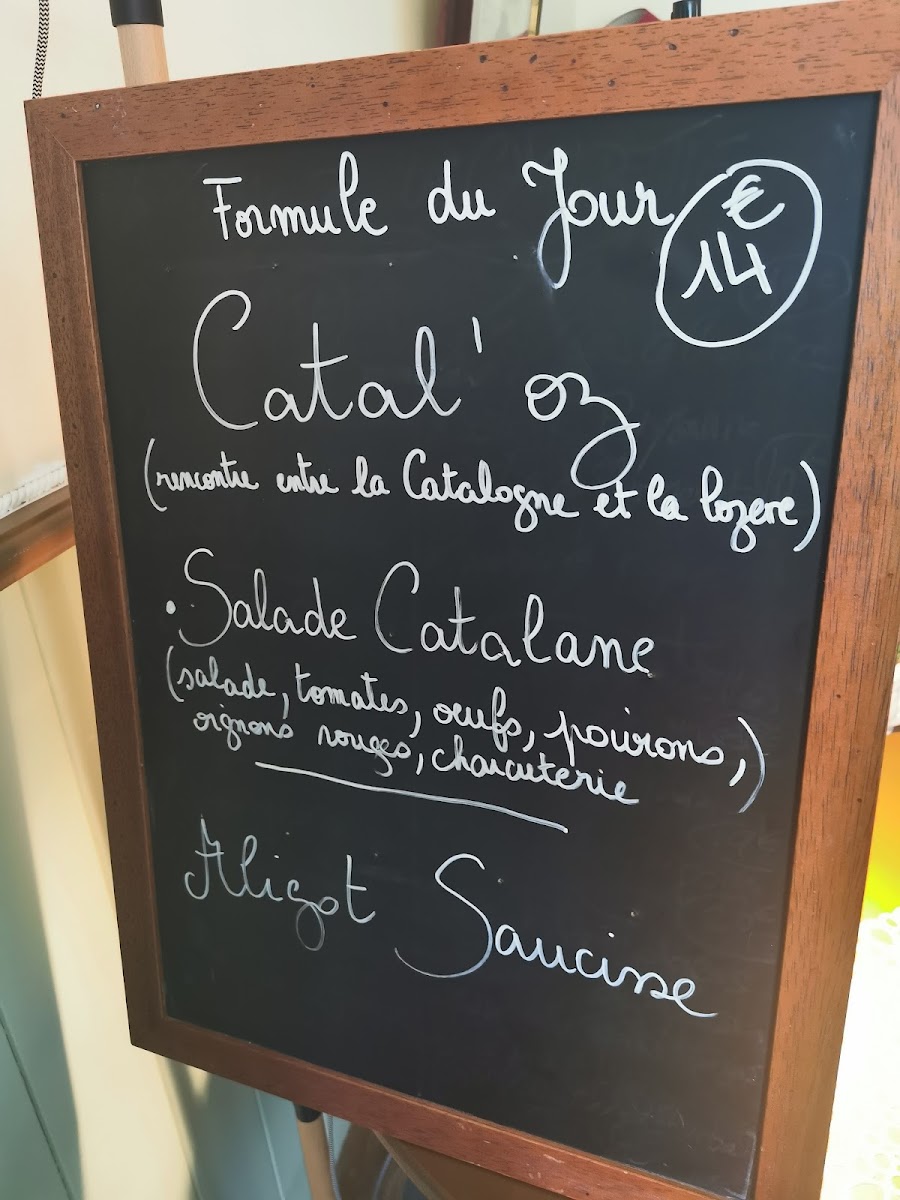 Formule du Jour
€
14
Catal' oz
(rencontre entre la Catalogne et la lozere)
• Salade Catalane
(salade, tomates, oeufs, poivrons,
oignons rouges, charcuterie)
Aligot Saucisse